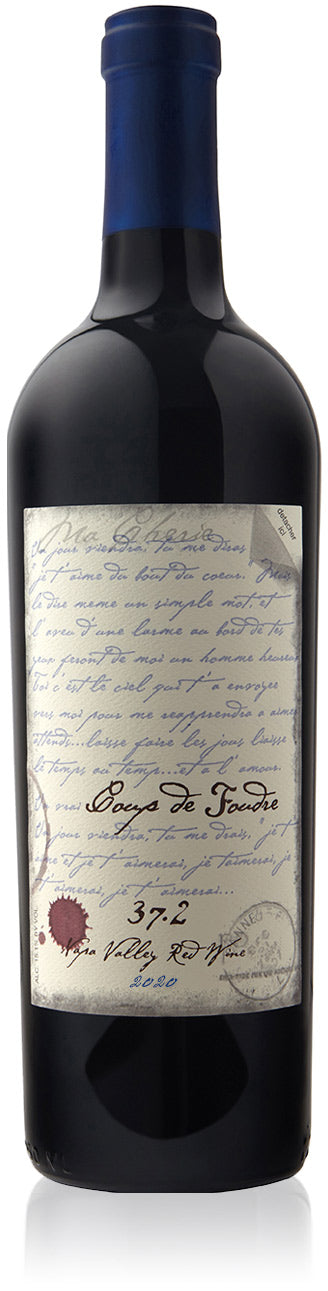 Ma Cherie
detacher
ici
Un jour viendra, tu me diras
"je t'aime du bout du coeur." Mais
le dire meme un simple mot, et
l'aveu d'une larme au bord de tes
yeux feront de moi un homme heureux
Toi c'est le ciel qui t'a envoyee
vers moi pour me reapprendra a aimer
attends...laisse faire les jours liaisse
le temps au temps...et a l'amour.
vrai Coup de Foudre
Un jour viendra, tu me drais, "je t'
aime et je t'aimerai, je t'aimerai, je
t'aimerai, je t'aimerai...
37.2
Napa Valley Red Wine
2020
ALC. 15.1% BY VOL.